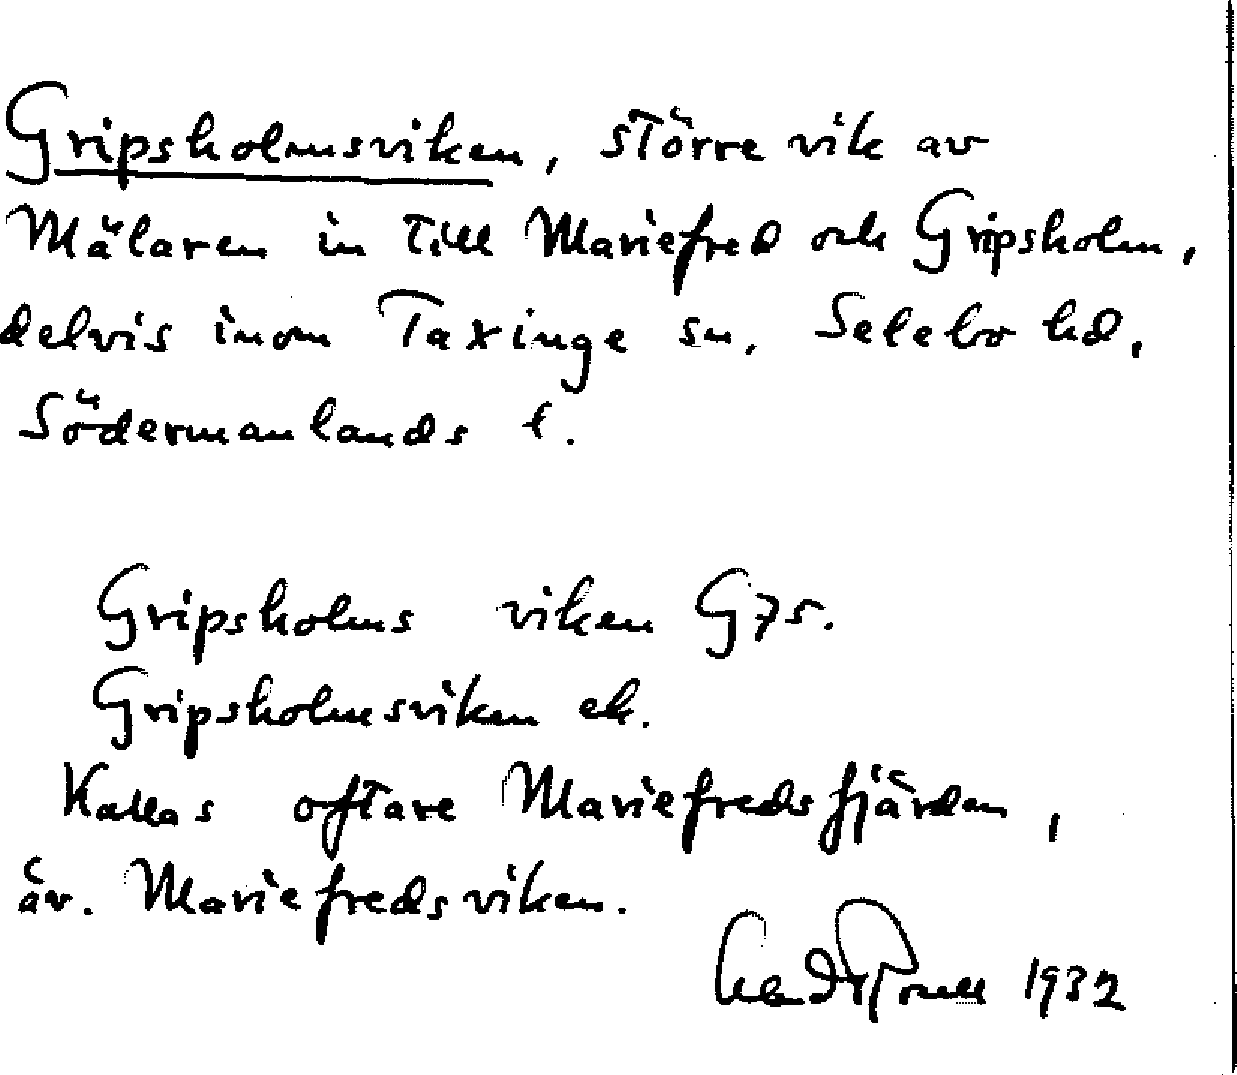 Gripsholmsviken, större vik av
Mälaren in till Mariefred och Gripsholm,
delvis inom Taxinge sn, Selebo hd,
Södermanlands l.
Gripsholms viken G75.
Gripsholmsviken ek.
Kallas oftare Mariefredsfjärden,
äv. Mariefredsviken.
1932